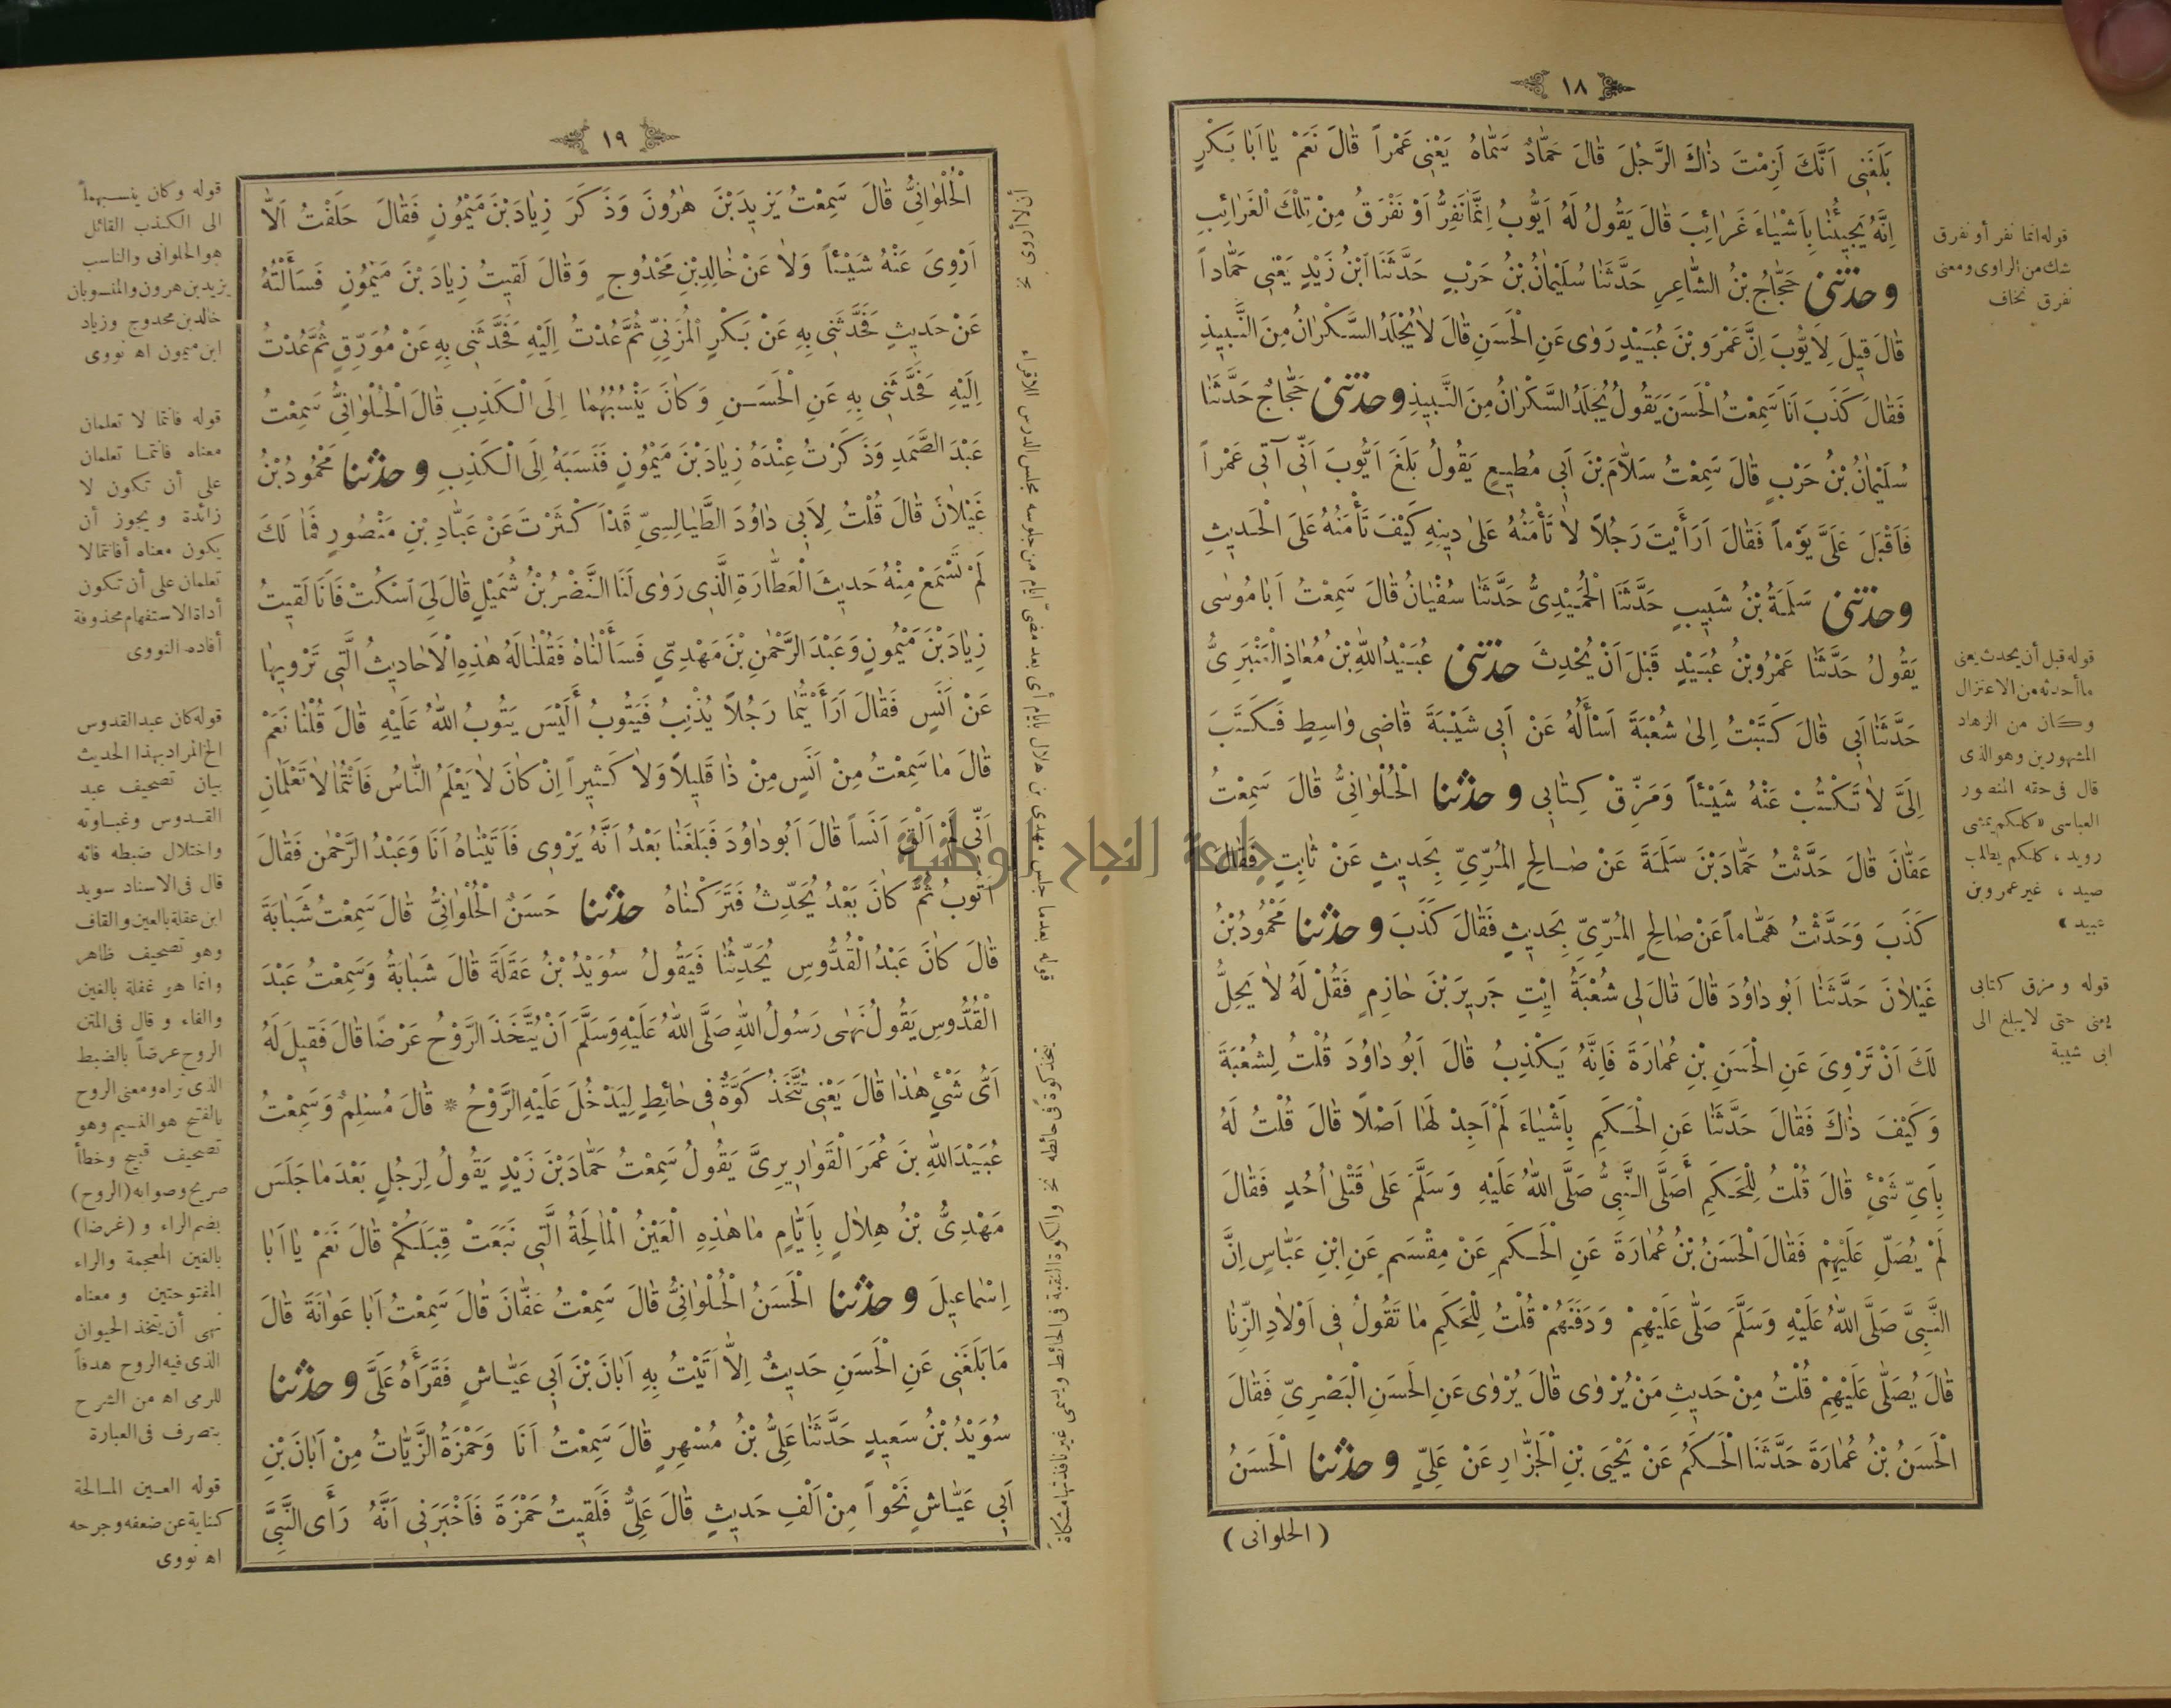 ١٨
بَلَغَنِى اَنَّكَ لَزِمْتَ ذٰاكَ الرَّجُلَ قٰالَ حَمّٰادٌ سَمّٰاهُ يَعْنِى عَمْراً قٰالَ نَعَمْ يٰا اَبٰا بَكْرٍ
اِنَّهُ يَجِيئُنٰا بِاَشْيٰاءَ غَرٰائِبَ قٰالَ يَقُولُ لَهُ اَيُّوبُ اِنَّمٰا نَفِرُّ اَوْ نَفْرَقُ مِنْ تِلْكَ الْغَرٰائِبِ
و حدثنى حَجّٰاجُ بْنُ الشّٰاعِرِ حَدَّثَنٰا سُلَيْمٰانُ بْنُ حَرْبٍ حَدَّثَنَا ابْنُ زَيْدٍ يَعْنِى حَمّٰاداً
قٰالَ قِيلَ لِاَيُّوبَ اِنَّ عَمْرَو بْنَ عُبَيْدٍ رَوٰى عَنِ الْحَسَنِ قٰالَ لاٰ يُجْلَدُ السَّكْرٰانُ مِنَ النَّبِيذِ
فَقٰالَ كَذَبَ اَنَا سَمِعْتُ الْحَسَنَ يَقُولُ يُجْلَدُ السَّكْرٰانُ مِنَ النَّبِيذِ و حدثنى حَجّٰاجٌ حَدَّثَنٰا
سُلَيْمٰانُ بْنُ حَرْبٍ قٰالَ سَمِعْتُ سَلاّٰمَ بْنَ اَبِى مُطِيعٍ يَقُولُ بَلَغَ اَيُّوبَ اَنِّى آتِى عَمْراً
فَاَقْبَلَ عَلَىَّ يَوْماً فَقٰالَ اَرَأَيْتَ رَجُلاً لاٰ تَأْمَنُهُ عَلىٰ دِينِهِ كَيْفَ تَأْمَنُهُ عَلَى الْحَدِيثِ
و حدثنى سَلَمَةُ بْنُ شَبِيبٍ حَدَّثَنَا الْحُمَيْدِىُّ حَدَّثَنٰا سُفْيٰانُ قٰالَ سَمِعْتُ اَبٰا مُوسٰى
يَقُولُ حَدَّثَنٰا عَمْرُو بْنُ عُبَيْدٍ قَبْلَ اَنْ يُحْدِثَ حدثنى عُبَيْدُ اللّٰهِ بْنُ مُعٰاذٍ الْعَنْبَرِىُّ
حَدَّثَنٰا اَبِى قٰالَ كَتَبْتُ اِلىٰ شُعْبَةَ اَسْأَلُهُ عَنْ اَبِى شَيْبَةَ قٰاضِى وٰاسِطٍ فَكَتَبَ
اِلَىَّ لاٰ تَكْتُبْ عَنْهُ شَيْئاً وَمَزِّقْ كِتٰابِى و حدثنا الْحُلْوٰانِىُّ قٰالَ سَمِعْتُ
عَفّٰانَ قٰالَ حَدَّثْتُ حَمّٰادَ بْنَ سَلَمَةَ عَنْ صٰالِحٍ الْمُرِّىِّ بِحَدِيثٍ عَنْ ثٰابِتٍ فَقٰالَ
كَذَبَ وَحَدَّثْتُ هَمّٰاماً عَنْ صٰالِحٍ الْمُرِّىِّ بِحَدِيثٍ فَقٰالَ كَذَبَ و حدثنا مَحْمُودُ بْنُ
غَيْلاٰنَ حَدَّثَنٰا اَبُو دٰاوُدَ قٰالَ قٰالَ لِى شُعْبَةُ اِيْتِ جَرِيرَ بْنَ حٰازِمٍ فَقُلْ لَهُ لاٰ يَحِلُّ
لَكَ اَنْ تَرْوِىَ عَنِ الْحَسَنِ بْنِ عُمٰارَةَ فَاِنَّهُ يَكْذِبُ قٰالَ اَبُو دٰاوُدَ قُلْتُ لِشُعْبَةَ
وَكَيْفَ ذٰاكَ فَقٰالَ حَدَّثَنٰا عَنِ الْحَكَمِ بِاَشْيٰاءَ لَمْ اَجِدْ لَهٰا اَصْلاً قٰالَ قُلْتُ لَهُ
بِاَىِّ شَىْءٍ قٰالَ قُلْتُ لِلْحَكَمِ أَصَلَّى النَّبِىُّ صَلَّى اللّٰهُ عَلَيْهِ وَسَلَّمَ عَلىٰ قَتْلىٰ اُحُدٍ فَقٰالَ
لَمْ يُصَلِّ عَلَيْهِمْ فَقٰالَ الْحَسَنُ بْنُ عُمٰارَةَ عَنِ الْحَكَمِ عَنْ مِقْسَمٍ عَنِ ابْنِ عَبّٰاسٍ اِنَّ
النَّبِىَّ صَلَّى اللّٰهُ عَلَيْهِ وَسَلَّمَ صَلّٰى عَلَيْهِمْ وَدَفَنَهُمْ قُلْتُ لِلْحَكَمِ مٰا تَقُولُ فِى اَوْلاٰدِ الزِّنٰا
قٰالَ يُصَلّٰى عَلَيْهِمْ قُلْتُ مِنْ حَدِيثِ مَنْ يُرْوٰى قٰالَ يُرْوٰى عَنِ الْحَسَنِ الْبَصْرِىِّ فَقٰالَ
الْحَسَنُ بْنُ عُمٰارَةَ حَدَّثَنَا الْحَكَمُ عَنْ يَحْيَى بْنِ الْجَزّٰارِ عَنْ عَلِىٍّ و حدثنا الْحَسَنُ
(الحلوانى)
قوله انما نفر أو نفرق
شك من الراوى ومعنى
نفرق نخاف
قوله قبل أن يحدث يعنى
ما أحدثه من الاعتزال
وكان من الزهاد
المشهورين وهو الذى
قال فى حقه المنصور
العباسى «كلكم يمشى
رويد ، كلكم يطلب
صيد ، غير عمرو بن
عبيد»
قوله ومزق كتابى
يعنى حتى لا يبلغ الى
ابى شيبة
١٩
الْحُلْوٰانِىُّ قٰالَ سَمِعْتُ يَزِيدَ بْنَ هٰرُونَ وَذَكَرَ زِيٰادَ بْنَ مَيْمُونٍ فَقٰالَ حَلَفْتُ اَلاّٰ
اَرْوِىَ عَنْهُ شَيْئاً وَلاٰ عَنْ خٰالِدِ بْنِ مَحْدُوجٍ وَقٰالَ لَقِيتُ زِيٰادَ بْنَ مَيْمُونٍ فَسَأَلْتُهُ
عَنْ حَدِيثٍ فَحَدَّثَنِى بِهِ عَنْ بَكْرٍ الْمُزَنِىِّ ثُمَّ عُدْتُ اِلَيْهِ فَحَدَّثَنِى بِهِ عَنْ مُوَرِّقٍ ثُمَّ عُدْتُ
اِلَيْهِ فَحَدَّثَنِى بِهِ عَنِ الْحَسَنِ وَكٰانَ يَنْسُبُهُمٰا اِلَى الْكَذِبِ قٰالَ الْحُلْوٰانِىُّ سَمِعْتُ
عَبْدَ الصَّمَدِ وَذَكَرْتُ عِنْدَهُ زِيٰادَ بْنَ مَيْمُونٍ فَنَسَبَهُ اِلَى الْكَذِبِ و حدثنا مَحْمُودُ بْنُ
غَيْلاٰنَ قٰالَ قُلْتُ لِاَبِى دٰاوُدَ الطَّيٰالِسِىِّ قَدْ اَكْثَرْتَ عَنْ عَبّٰادِ بْنِ مَنْصُورٍ فَمٰا لَكَ
لَمْ تَسْمَعْ مِنْهُ حَدِيثَ الْعَطّٰارَةِ الَّذِى رَوٰى لَنَا النَّضْرُ بْنُ شُمَيْلٍ قٰالَ لِىَ اسْكُتْ فَاَنَا لَقِيتُ
زِيٰادَ بْنَ مَيْمُونٍ وَعَبْدَ الرَّحْمٰنِ بْنَ مَهْدِىٍّ فَسَأَلْنٰاهُ فَقُلْنٰا لَهُ هٰذِهِ الْاَحٰادِيثُ الَّتِى تَرْوِيهٰا
عَنْ اَنَسٍ فَقٰالَ اَرَأَيْتُمٰا رَجُلاً يُذْنِبُ فَيَتُوبُ أَلَيْسَ يَتُوبُ اللّٰهُ عَلَيْهِ قٰالَ قُلْنٰا نَعَمْ
قٰالَ مٰا سَمِعْتُ مِنْ اَنَسٍ مِنْ ذٰا قَلِيلاً وَلاٰ كَثِيراً اِنْ كٰانَ لاٰ يَعْلَمُ النّٰاسُ فَاَنْتُمٰا لاٰ تَعْلَمٰانِ
اَنِّى لَمْ اَلْقَ اَنَساً قٰالَ اَبُو دٰاوُدَ فَبَلَغَنٰا بَعْدُ اَنَّهُ يَرْوِى فَاَتَيْنٰاهُ اَنَا وَعَبْدُ الرَّحْمٰنِ فَقٰالَ
اَتُوبُ ثُمَّ كٰانَ بَعْدُ يُحَدِّثُ فَتَرَكْنٰاهُ حدثنا حَسَنٌ الْحُلْوٰانِىُّ قٰالَ سَمِعْتُ شَبٰابَةَ
قٰالَ كٰانَ عَبْدُ الْقُدُّوسِ يُحَدِّثُنٰا فَيَقُولُ سُوَيْدُ بْنُ عَقَلَةَ قٰالَ شَبٰابَةُ وَسَمِعْتُ عَبْدَ
الْقُدُّوسِ يَقُولُ نَهٰى رَسُولُ اللّٰهِ صَلَّى اللّٰهُ عَلَيْهِ وَسَلَّمَ اَنْ يُتَّخَذَ الرَّوْحُ عَرْضًا قٰالَ فَقِيلَ لَهُ
اَىُّ شَىْءٍ هٰذٰا قٰالَ يَعْنِى تُتَّخَذُ كَوَّةٌ فِى حٰائِطٍ لِيَدْخُلَ عَلَيْهِ الرَّوْحُ * قٰالَ مُسْلِمٌ وَسَمِعْتُ
عُبَيْدَ اللّٰهِ بْنَ عُمَرَ الْقَوٰارِيرِىَّ يَقُولُ سَمِعْتُ حَمّٰادَ بْنَ زَيْدٍ يَقُولُ لِرَجُلٍ بَعْدَ مٰا جَلَسَ
مَهْدِىُّ بْنُ هِلاٰلٍ بِاَيّٰامٍ مٰا هٰذِهِ الْعَيْنُ الْمٰالِحَةُ الَّتِى نَبَعَتْ قِبَلَكُمْ قٰالَ نَعَمْ يٰا اَبٰا
اِسْمٰاعِيلَ و حدثنا الْحَسَنُ الْحُلْوٰانِىُّ قٰالَ سَمِعْتُ عَفّٰانَ قٰالَ سَمِعْتُ اَبٰا عَوٰانَةَ قٰالَ
مَا بَلَغَنِى عَنِ الْحَسَنِ حَدِيثٌ اِلاّٰ اَتَيْتُ بِهِ اَبٰانَ بْنَ اَبِى عَيّٰاشٍ فَقَرَأَهُ عَلَىَّ و حدثنا
سُوَيْدُ بْنُ سَعِيدٍ حَدَّثَنٰا عَلِىُّ بْنُ مُسْهِرٍ قٰالَ سَمِعْتُ اَنَا وَحَمْزَةُ الزَّيّٰاتُ مِنْ اَبٰانَ بْنِ
اَبِى عَيّٰاشٍ نَحْواً مِنْ اَلْفِ حَدِيثٍ قٰالَ عَلِىٌّ فَلَقِيتُ حَمْزَةَ فَاَخْبَرَنِى اَنَّهُ رَأَى النَّبِىَّ
قوله وكان ينسبهما
الى الكذب القائل
هو الحلوانى والناسب
يزيد بن هرون والمنسوبان
خالد بن محدوج وزياد
ابن ميمون اه نووى
قوله فانتما لا تعلمان
معناه فانتما تعلمان
على أن تكون لا
زائدة ويجوز أن
يكون معناه أفانتما لا
تعلمان على أن تكون
أداة الاستفهام محذوفة
أفاده النووى
قوله كان عبد القدوس
الخ المراد بهذا الحديث
بيان تصحيف عبد
القدوس وغباوته
واختلال ضبطه فانه
قال فى الاسناد سويد
ابن عقلة بالعين والقاف
وهو تصحيف ظاهر
وانما هو غفلة بالغين
والفاء وقال فى المتن
الروح عرضاً بالضبط
الذى تراه ومعنى الروح
بالفتح هو النسيم وهو
تصحيف قبيح وخطأ
صريح وصوابه (الروح)
بضم الراء و (غرضا)
بالغين المعجمة والراء
المفتوحتين ومعناه
نهى أن يتخذ الحيوان
الذى فيه الروح هدفاً
للرمى اه من الشرح
بتصرف فى العبارة
قوله العين المالحة
كناية عن ضعفه وجرحه
اه نووى
أن لا أروى نخ
قوله بعدما جلس مهدى بن هلال بأيام أى بعد مضىّ ايام من جلوسه مجلس الدرس للاقراء
يتخذ كوة فى حائطه نخ والكوة الثقبة فى الحائط ويسمى غير نافذتها مشكاة
جامعة النجاح الوطنية